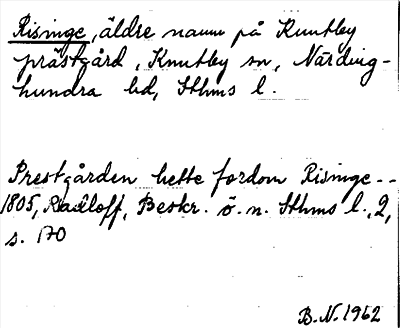 Risinge, äldre namn på Knutby
prästgård, Knutby sn, Närding-
hundra hd, Sthms l.
Prestgården hette fordom Risinge --
1805, Radloff, Beskr. ö. n. Sthms l., 2,
s. 170
B.N. 1962